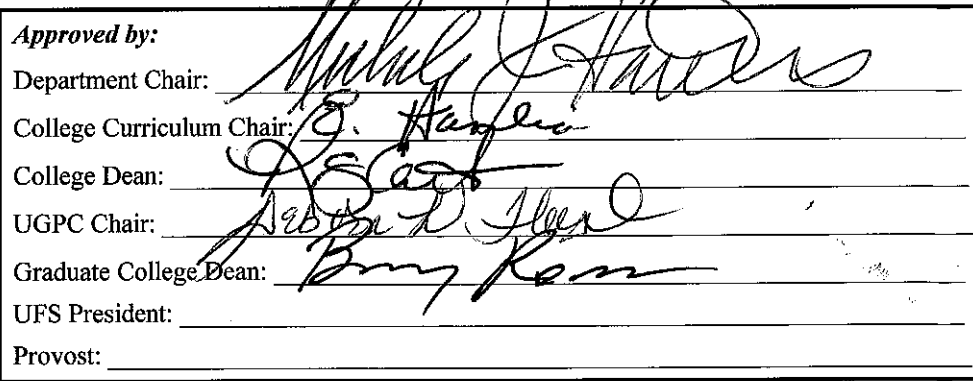 Approved by:
Department Chair:
College Curriculum Chair: E.
College Dean:
UGPC Chair:
Graduate College Dean:
UFS President:
Provost: